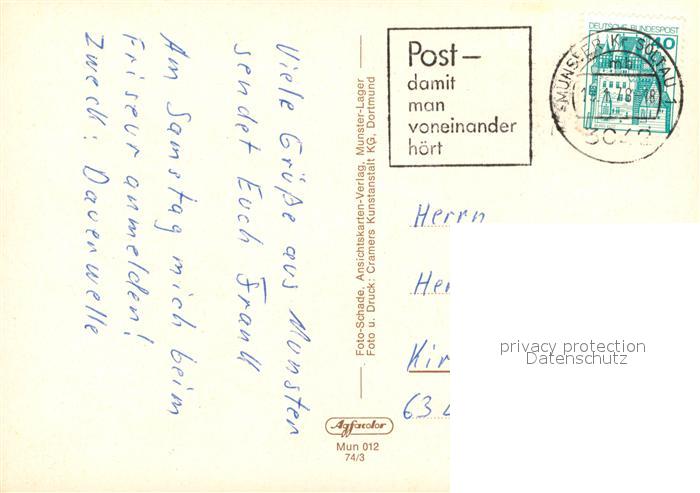 Viele Grüße aus Munster
sendet Euch Frank
Am Samstag mich beim
Friseur anmelden!
Zweck: Dauerwelle
Foto-Schade, Ansichtskarten-Verlag, Munster-Lager
Foto u. Druck: Cramers Kunstanstalt KG, Dortmund
Agfacolor
Mun 012
74/3
Post –
damit
man
voneinander
hört
DEUTSCHE BUNDESPOST
40
MUNSTER Kr SOLTAU 1
mb
3042
Herrn
privacy protection
Datenschutz